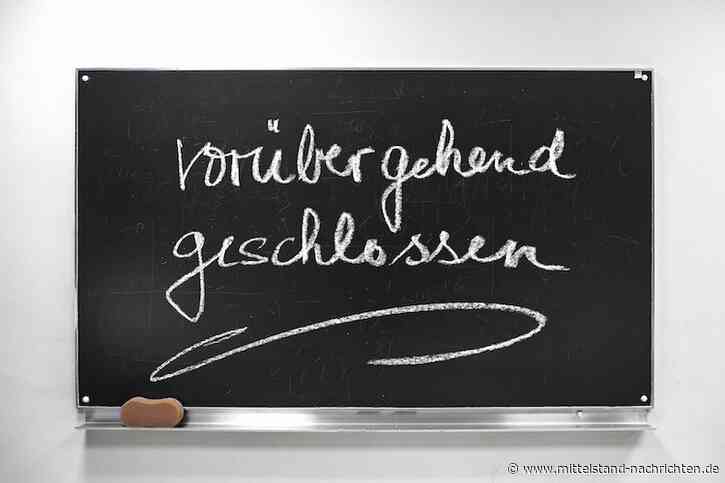 vorübergehend
geschlossen
© www.mittelstand-nachrichten.de